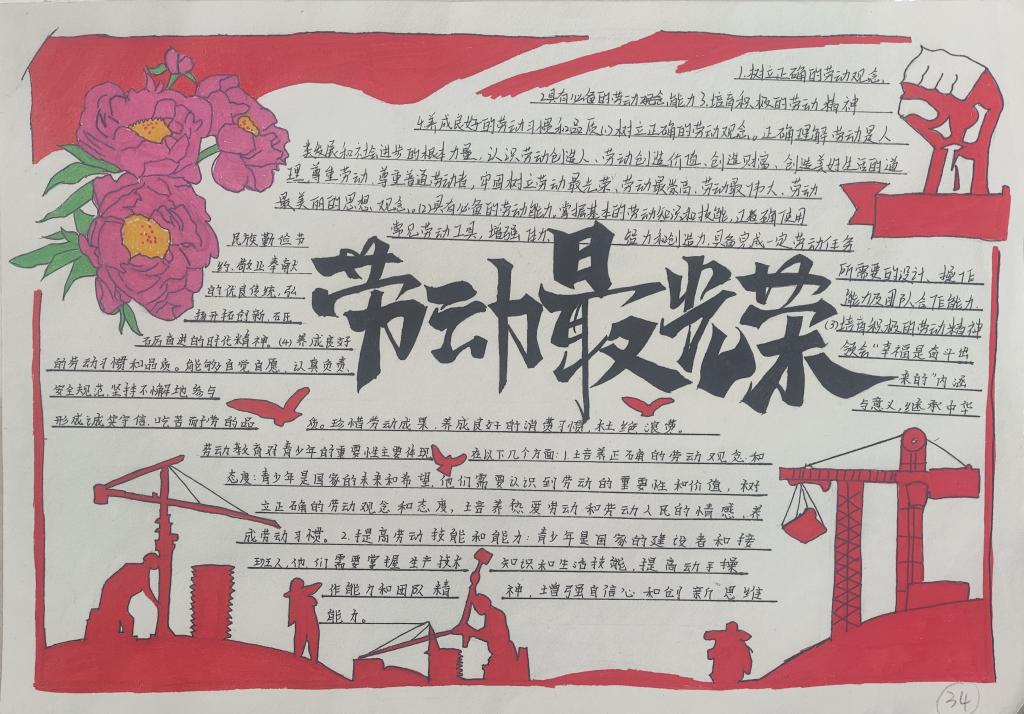 1.树立正确的劳动观念。
2具有必备的劳动观念能力3.培育积极的劳动精神
4.养成良好的劳动习惯和品质(1)树立正确的劳动观念。正确理解劳动是人
类发展和社会进步的根本力量,认识劳动创造人、劳动创造价值、创造财富、创造美好生活的道
理,尊重劳动,尊重普通劳动者,牢固树立劳动最光荣、劳动最崇高、劳动最伟大、劳动
最美丽的思想观念。(2)具有必备的劳动能力。掌握基本的劳动知识和技能,正确使用
常见劳动工具,增强体力、智力和创造力,具备完成一定劳动任务
所需要的设计、操作
能力及团队合作能力.
(3)培育积极的劳动精神
领会“幸福是奋斗出
来的”内涵
与意义,继承中华
民族勤俭节
约、敬业奉献
的优良传统,弘
扬开拓创新、砥
砺奋进的时代精神。(4)养成良好
的劳动习惯和品质。能够自觉自愿、认真负责、
安全规范、坚持不懈地参与
形成诚实守信、吃苦耐劳的品
质。珍惜劳动成果,养成良好的消费习惯,杜绝浪费。
劳动最光荣
劳动教育对青少年的重要性主要体现在以下几个方面:1.培养正确的劳动观念和
态度:青少年是国家的未来和希望,他们需要认识到劳动的重要性和价值,树
立正确的劳动观念和态度,培养热爱劳动和劳动人民的情感,养
成劳动习惯。2.提高劳动技能和能力:青少年是国家的建设者和接
班人,他们需要掌握生产技术知识和生活技能,提高动手操
作能力和团队精神,增强自信心和创新思维
能力。
34